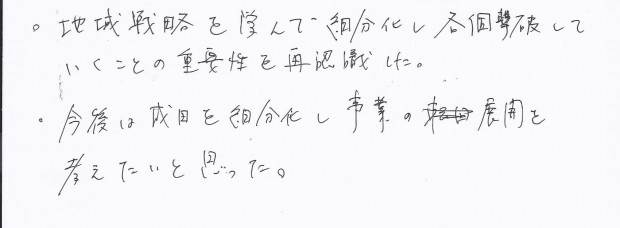 。地域戦略を学んで細分化し各個撃破して
いくことの重要性を再認識した。
・今後は成田を細分化し事業の展開を
考えたいと思った。